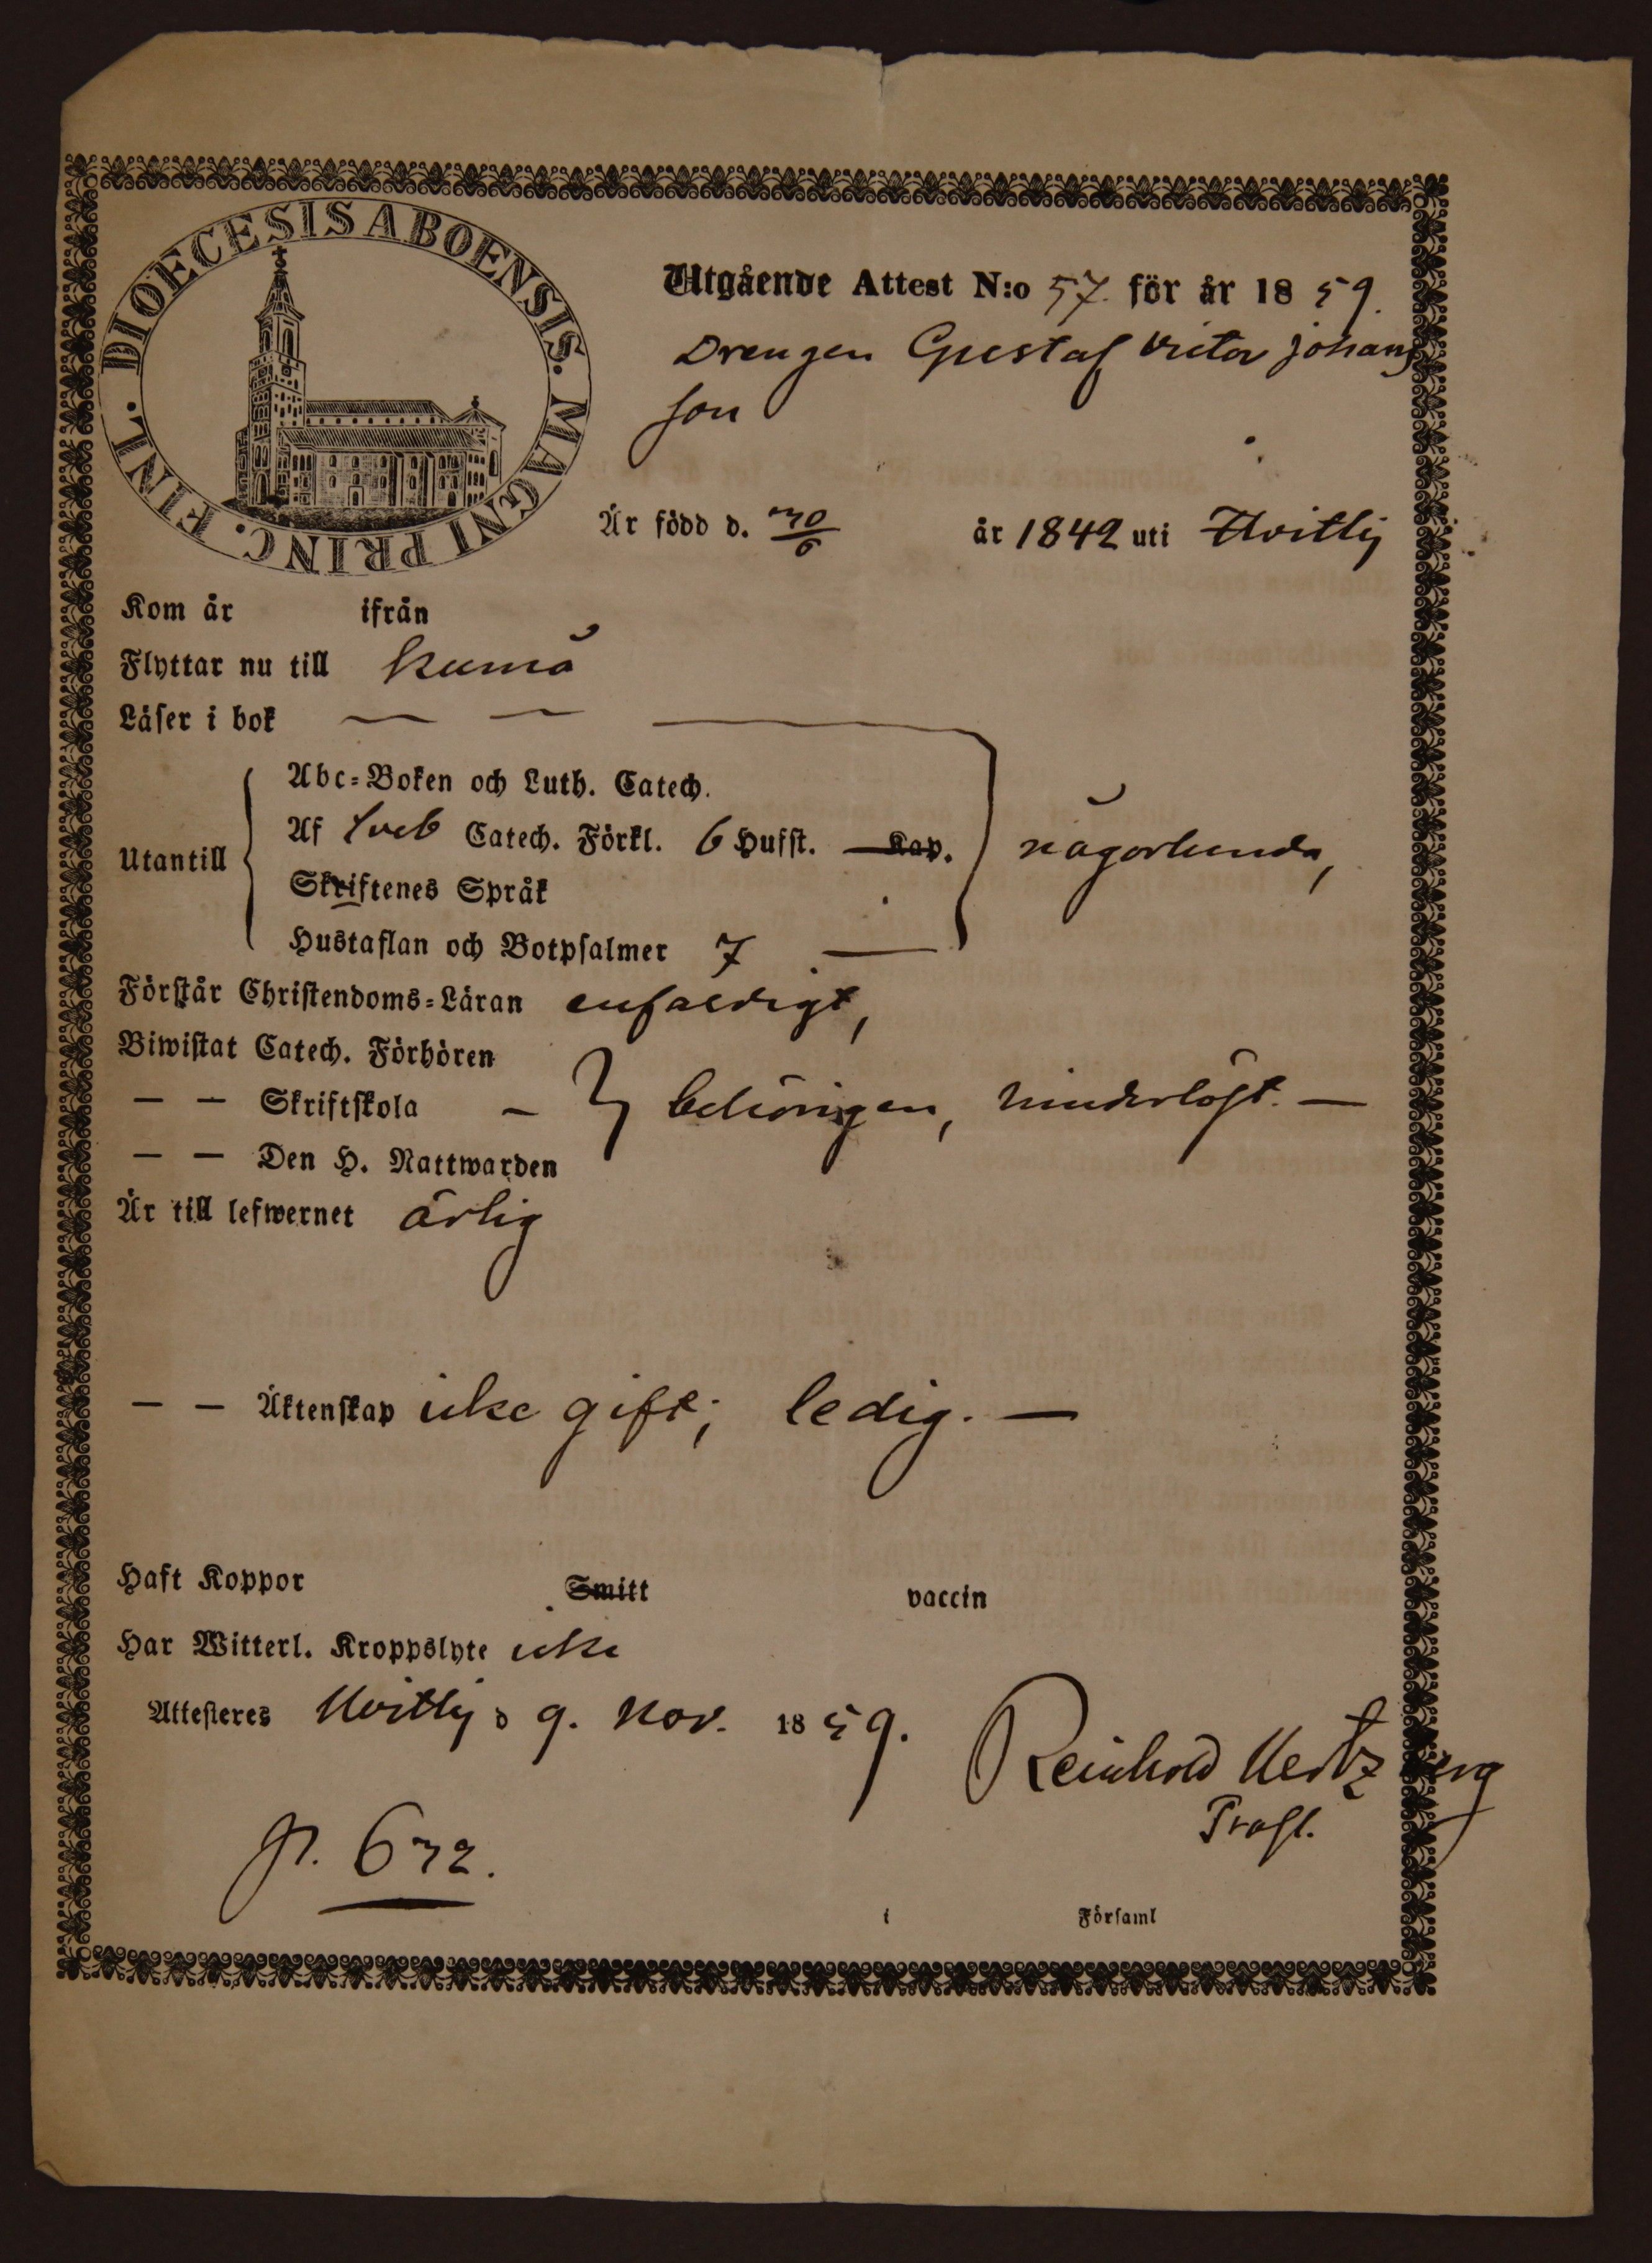 DIOECESIS ABOENSIS. MAGNI PRINC. FINL.
Utgående Attest N:o 57. för år 1859.
Drengen Gustaf Victor Johans
son
Är född d. 30/6 år 1842 uti Hvittis
Kom år ifrån
Flyttar nu till Kumo
Läser i bok — — —
Abc-Boken och Luth. Catech.
Utantill Af Sveb Catech. Förkl. 6 Hufst. Kap. någorlunda,
Skriftenes Språk
Hustaflan och Botpsalmer 7 —
Förstår Christendoms-Läran enfaldigt,
Biwistat Catech. Förhören
— — Skriftskola – behörigen, hinderlöst. —
— — Den H. Nattwarden
Är till lefwernet ärlig
— — Äktenskap icke gift; ledig. —
Haft Koppor Smitt vaccin
Har Witterl. Kroppslyte icke
Attesteres Hvittis d 9. Nov. 1859.
Reinhold Hertzberg
Prost.
p. 632.
i Församl